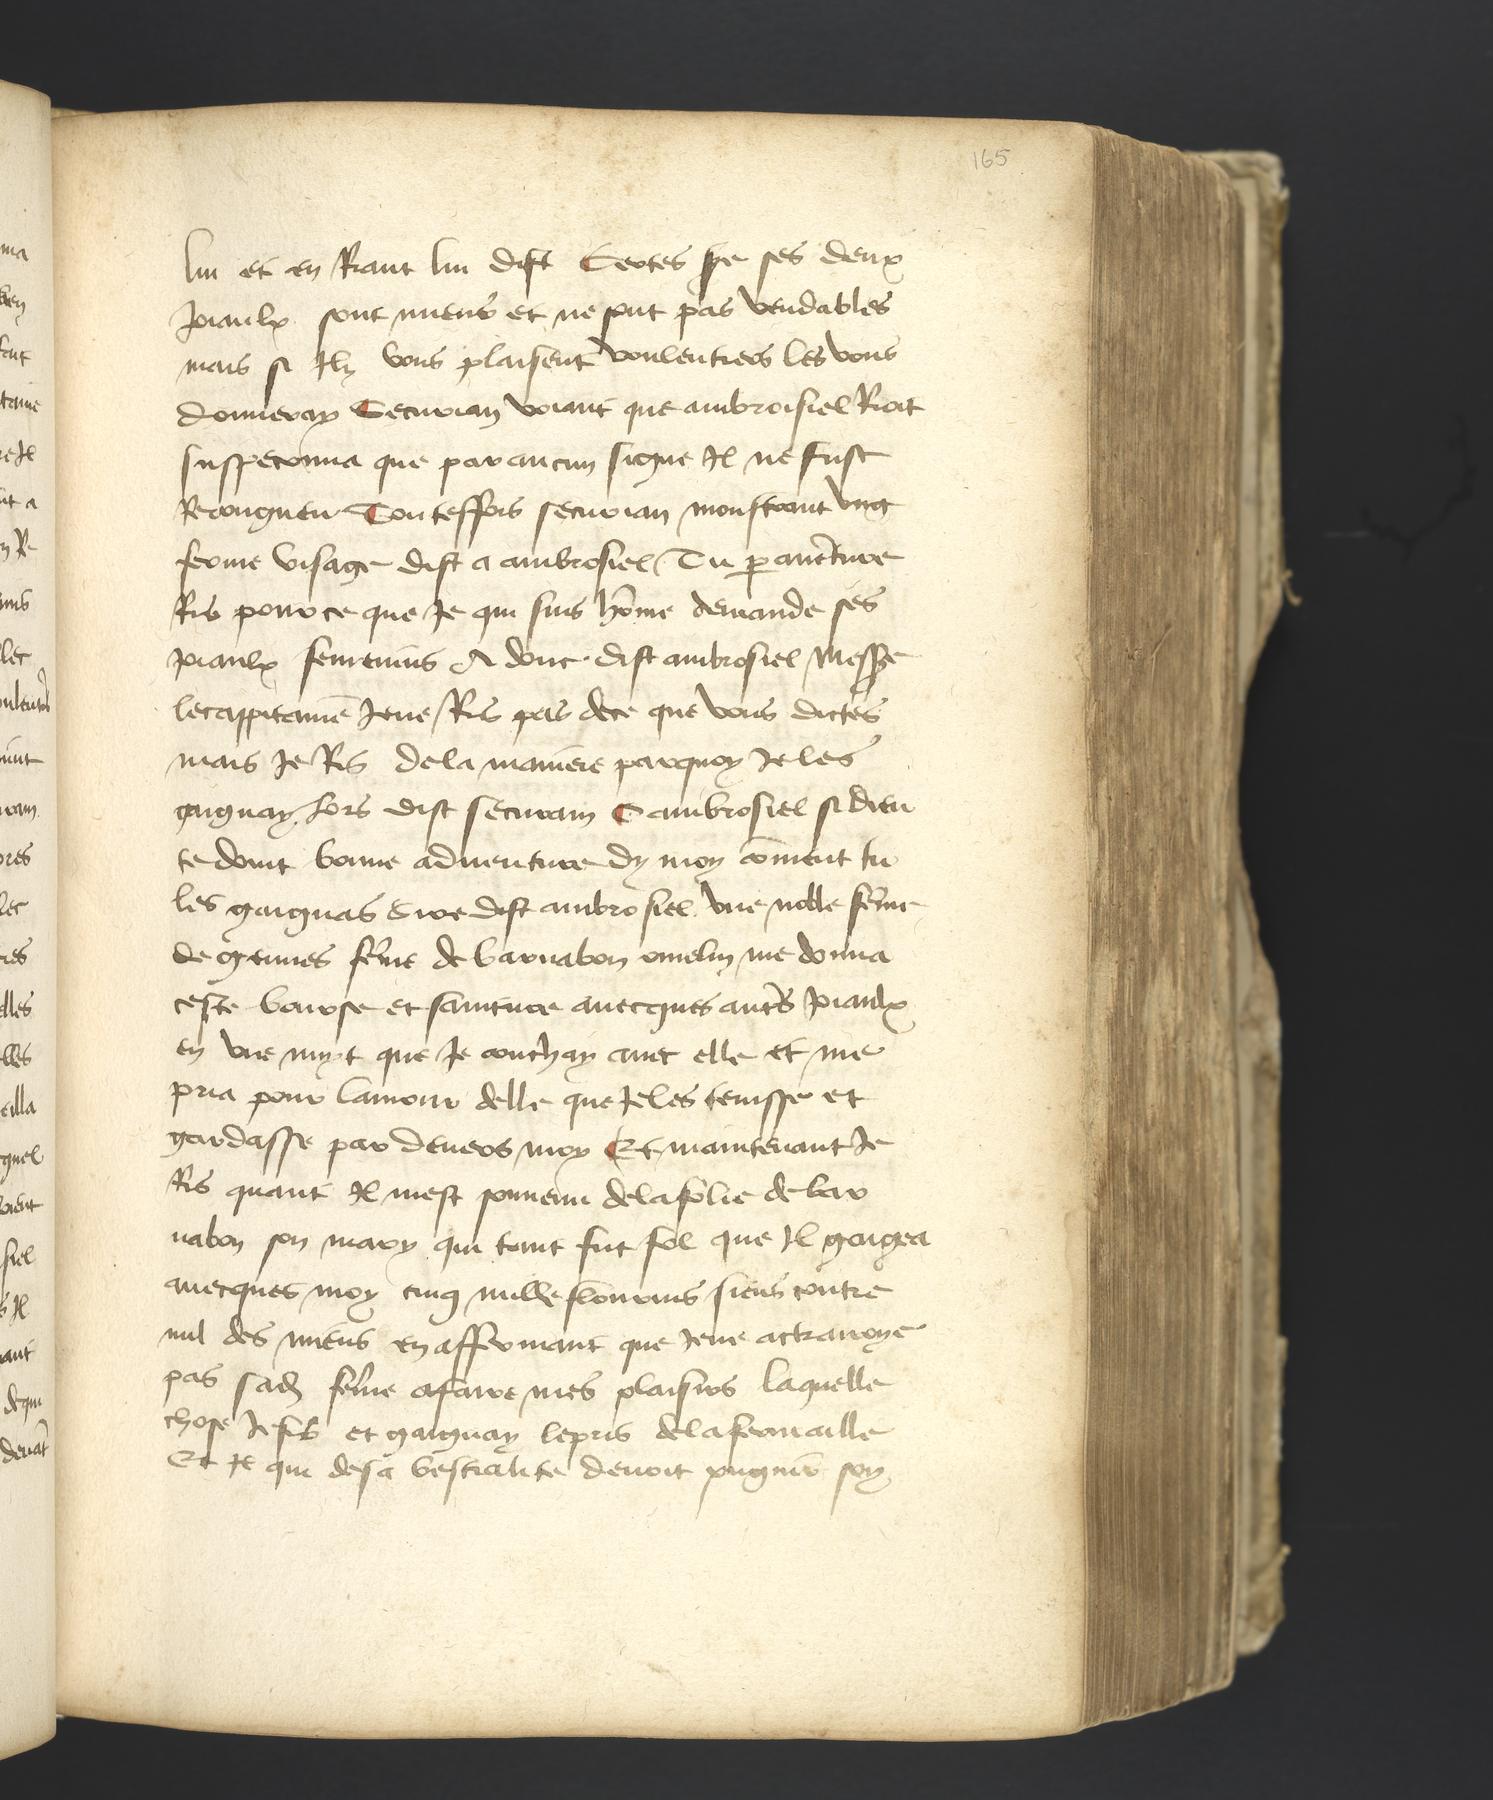 165
lui et en Riant lui dist Certes sire ses deux
Joiaulx sont miens et ne sont pas vendables
mais si Ilz vous plaisent voulentiers les vous
donneray Securian voiant que ambroisiel Rioit
suspeconna que par aucun signe Il ne fust
Recongneu Touteffois securian monstrant vng
ferme visage dist a ambrosiel Tu p auẽture
Ris pour ce que Je qui suis hõme demande ses
Joiaulx femenins A donc dist ambrosiel Messire
le cappitaine Je ne Ris pas de ce que vous dictes
mais Je Ris de la maniere par quoy Je les
gaignay Lors dist securam O ambrosiel si dieu
te doint bonne aduenture dy moy cõment tu
les gaignas Sire dist ambrosiel vne noble fẽme
de gennes fẽme de barnabon omelin me donna
ceste bourse et sainture auecques autrẽs Joiaulx
en vne nuyt que Je couchay auec elle et me
pria pour lamour delle que Je les tenisse et
gardasse par deuers moy Et maintenant Je
Ris quant Il mest souuenu de la folie de bar
nabon son mary qui tant fut fol que Il gaigea
auecques moy cinq mille flourins siens contre
mil des miens en affermant que Je ne actrairoye
pas sad fẽme a faire mes plaisirs laquelle
chose Je fis et gaignay le pris de la fermaille
Et Je qui de sa bestialite deuoit pugnir soy